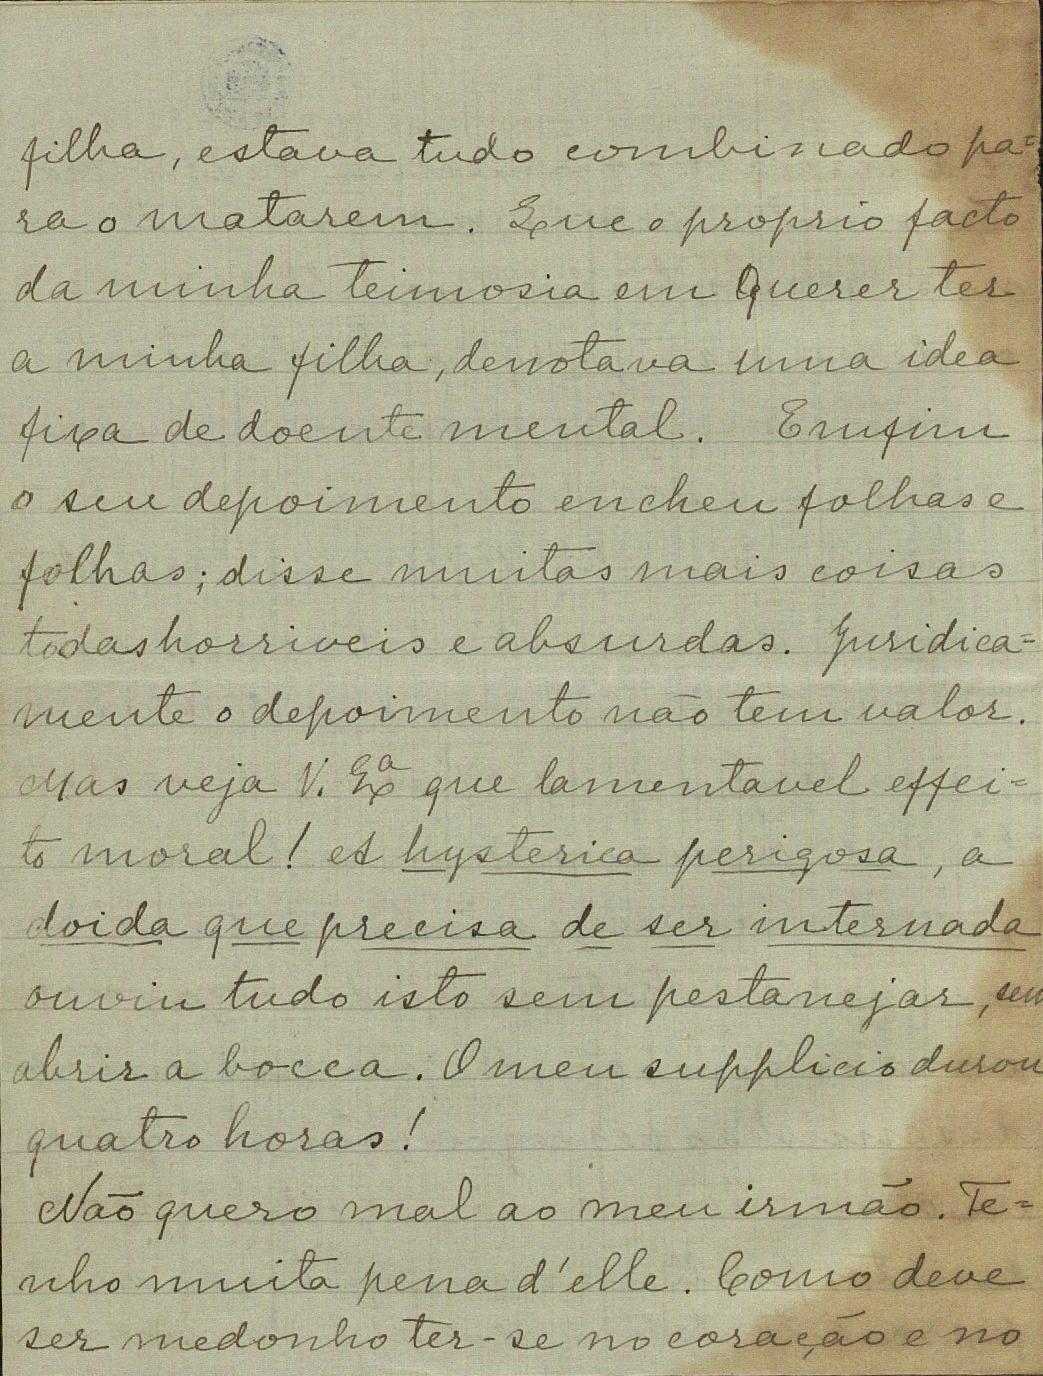 filha, estava tudo combinado pa=
ra o matarem. Que o proprio facto
da minha teimosia em querer ter
a minha filha, denotava uma idea
fixa de doente mental. Emfim
o seu depoimento encheu folhas e
folhas; disse muitas mais coisas
todas horriveis e absurdas. Juridica=
mente o depoimento não tem valor.
Mas veja V. Exª que lamentavel effei=
to moral! A hysterica perigosa, a
doida que precisa de ser internada
ouviu tudo isto sem pestanejar, sem
abrir a bocca. O meu supplicio durou
quatro horas!
Não quero mal ao meu irmão. Te=
nho muita pena d'elle. Como deve
ser medonho ter-se no coração e no